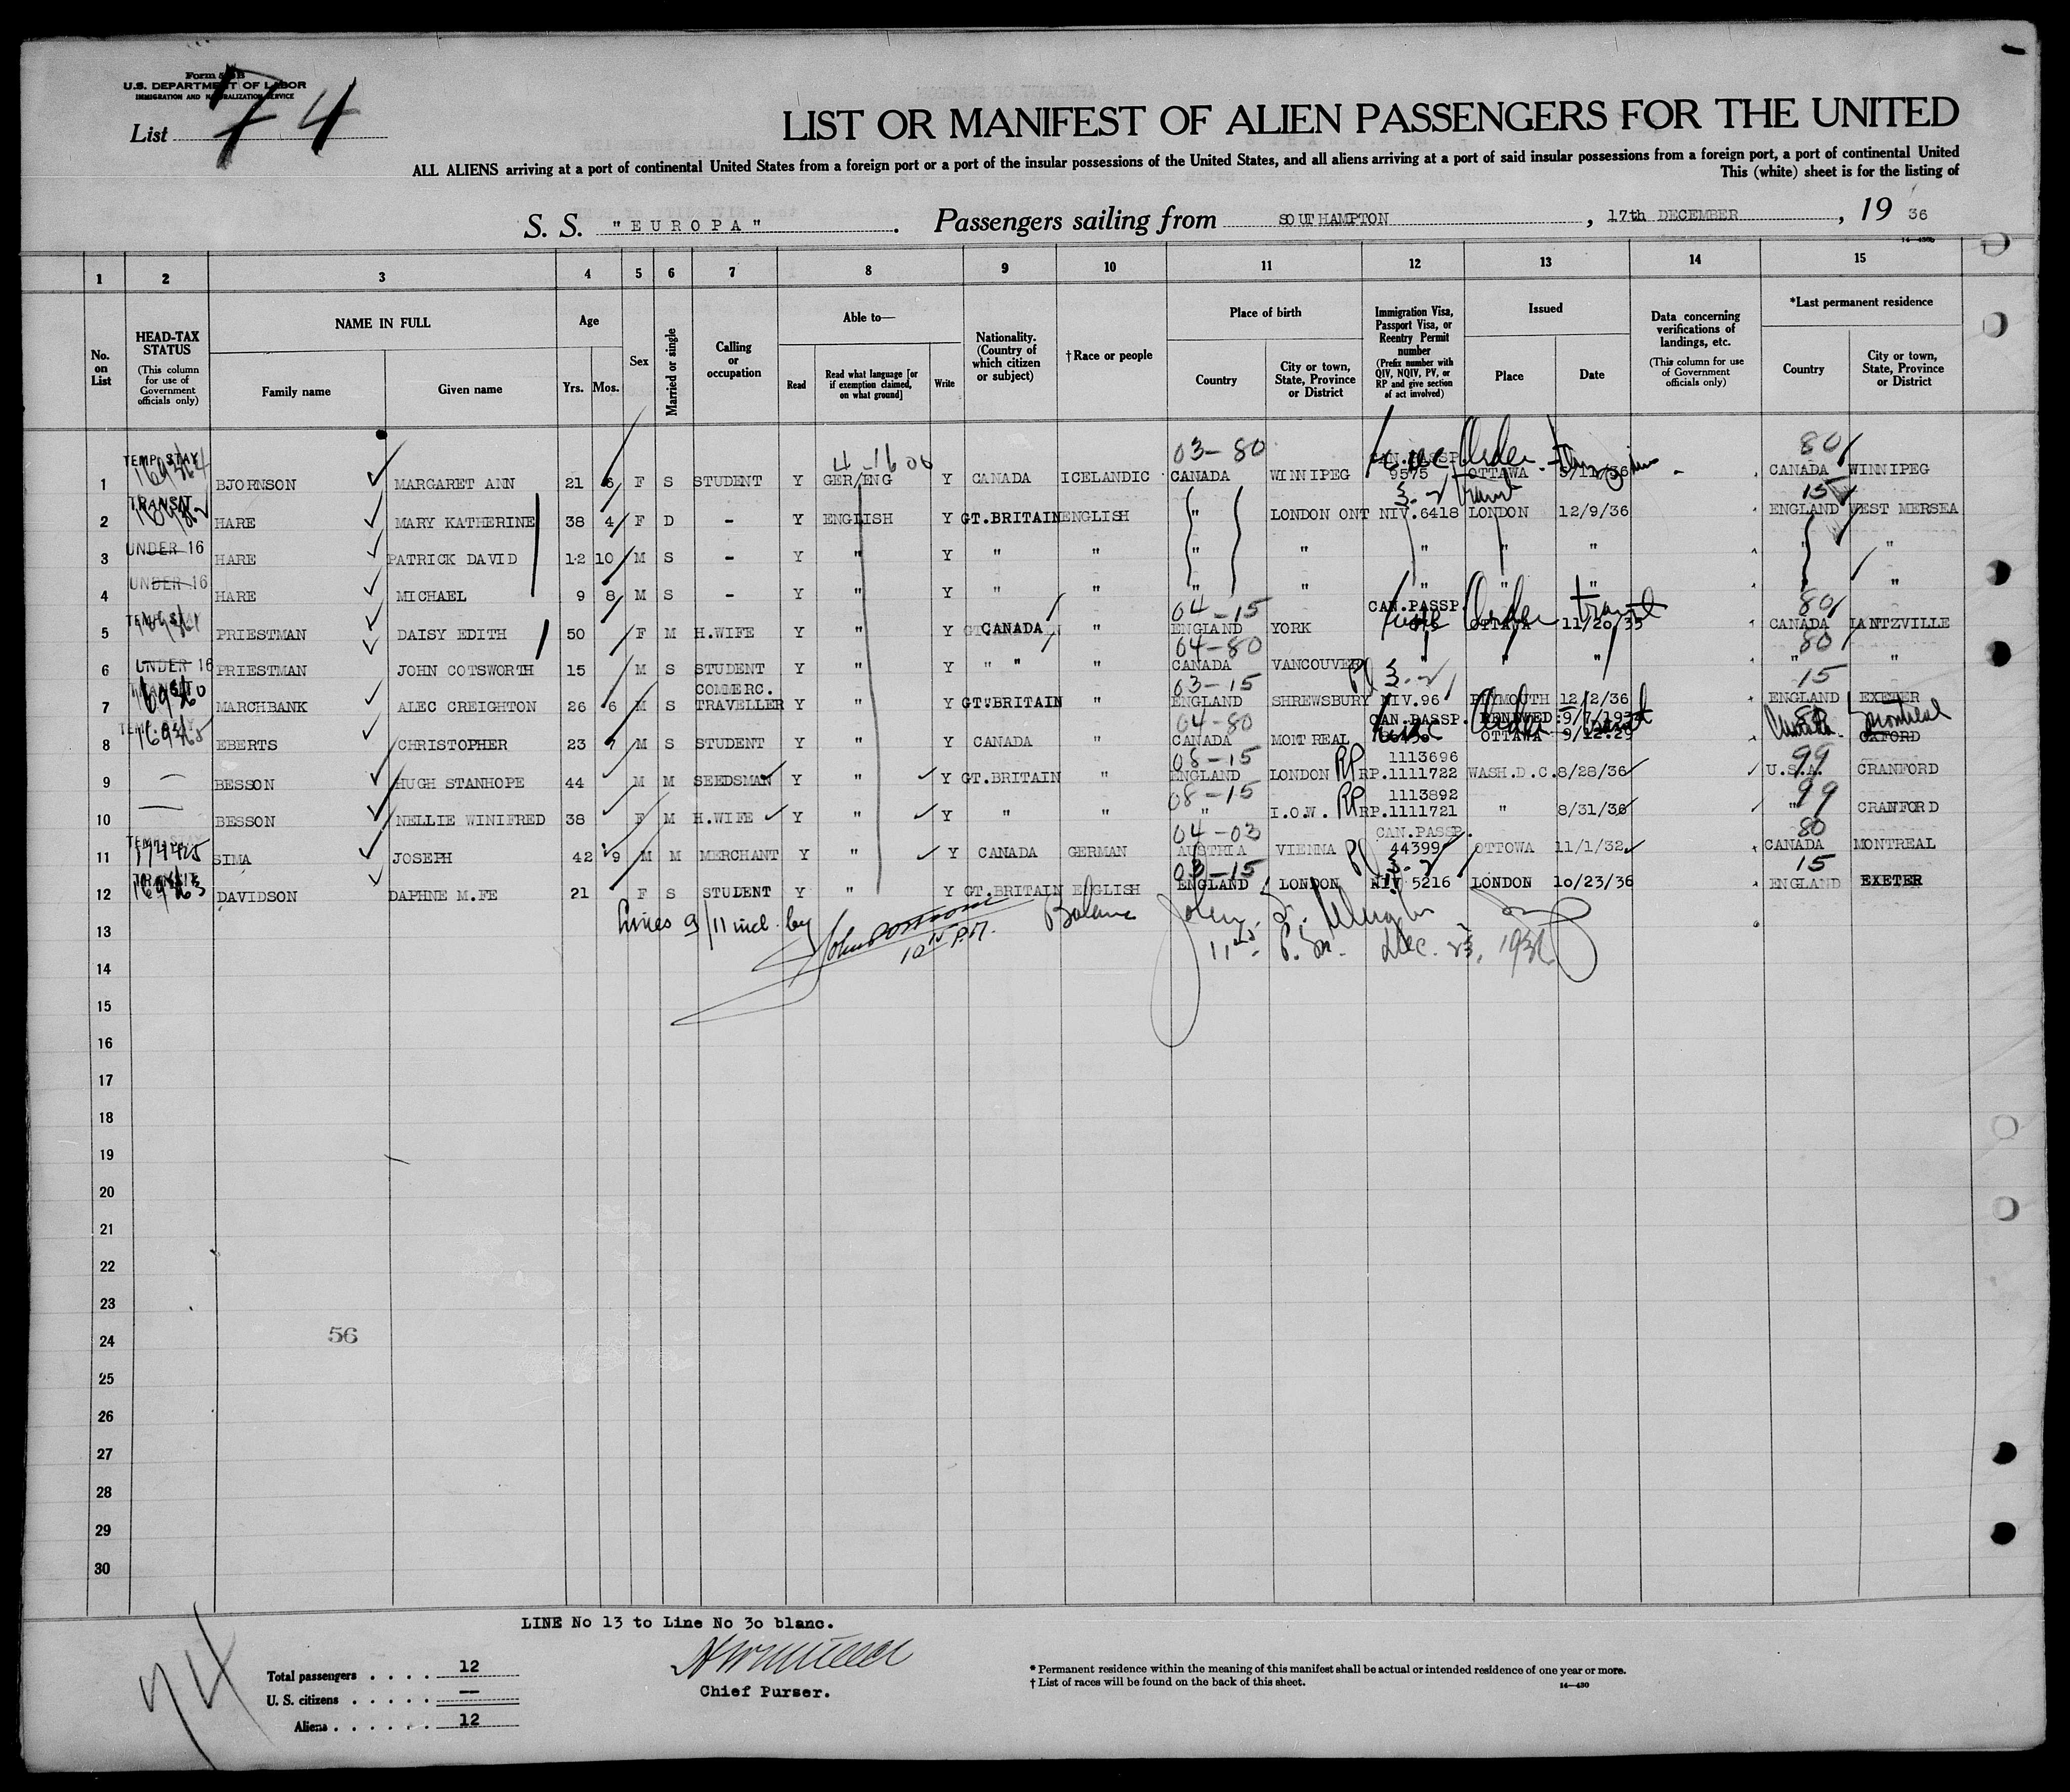 Form 500 B
U.S. DEPARTMENT OF LABOR
IMMIGRATION AND NATURALIZATION SERVICE
List 74
LIST OR MANIFEST OF ALIEN PASSENGERS FOR THE UNITED
ALL ALIENS arriving at a port of continental United States from a foreign port or a port of the insular possessions of the United States, and all aliens arriving at a port of said insular possessions from a foreign port, a port of continental United
This (white) sheet is for the listing of
S. S. "EUROPA" . Passengers sailing from SOUTHAMPTON , 17th DECEMBER , 19 36
14—430b
1 2 3 4 5 6 7 8 9 10 11 12 13 14 15
No. on List
HEAD-TAX STATUS (This column for use of Government officials only)
NAME IN FULL
Family name Given name
Age
Yrs. Mos.
Sex
Married or single
Calling or occupation
Able to—
Read Read what language [or if exemption claimed, on what ground] Write
Nationality. (Country of which citizen or subject)
†Race or people
Place of birth
Country City or town, State, Province or District
Immigration Visa, Passport Visa, or Reentry Permit number (Prefix number with QIV, NQIV, PV, or RP and give section of act involved)
Issued
Place Date
Data concerning verifications of landings, etc. (This column for use of Government officials only)
*Last permanent residence
Country City or town, State, Province or District
TEMP. STAY 4-16 06 03-80 CAN.PASSP. 80
1 BJORNSON MARGARET ANN 21 6 F S STUDENT Y GER/ENG Y CANADA ICELANDIC CANADA WINNIPEG 9575 OTTAWA 5/11/36 CANADA WINNIPEG
TRANSIT 3-2 transit 15
2 HARE MARY KATHERINE 38 4 F D - Y ENGLISH Y GT.BRITAIN ENGLISH " LONDON ONT NIV.6418 LONDON 12/9/36 ENGLAND WEST MERSEA
UNDER 16
3 HARE PATRICK DAVID 12 10 M S - Y " Y " " " " " " " " "
UNDER 16
4 HARE MICHAEL 9 8 M S - Y " Y " " " " " " " " "
04-15 CAN.PASSP. Order transit 80
5 PRIESTMAN DAISY EDITH 50 F M H.WIFE Y " Y CANADA " ENGLAND YORK OTTAWA 11/20/35 CANADA LANTZVILLE
UNDER 16 04-80 80
6 PRIESTMAN JOHN COTSWORTH 15 M S STUDENT Y " Y " " " CANADA VANCOUVER " " " " "
TRANSIT COMMERC. 03-15 3-2 15
7 MARCHBANK ALEC CREIGHTON 26 6 M S TRAVELLER Y " Y GT.BRITAIN " ENGLAND SHREWSBURY NIV.96 PLYMOUTH 12/2/36 ENGLAND EXETER
04-80 CAN.PASSP. RENEWED: 9/7/193 Canada Montreal
8 EBERTS CHRISTOPHER 23 7 M S STUDENT Y " Y CANADA " CANADA MONTREAL OTTAWA 9/12.29 OXFORD
08-15 RP 1113696 99
9 BESSON HUGH STANHOPE 44 M M SEEDSMAN Y " Y GT.BRITAIN " ENGLAND LONDON RP.1111722 WASH.D.C. 8/28/36 U.S.A. CRANFORD
08-15 RP 1113892 99
10 BESSON NELLIE WINIFRED 38 F M H.WIFE Y " Y " " " I.O.W. RP.1111721 " 8/31/36 " CRANFORD
04-03 CAN.PASSP. 80
11 SIMA JOSEPH 42 9 M M MERCHANT Y " Y CANADA GERMAN AUSTRIA VIENNA 44399 OTTOWA 11/1/32 CANADA MONTREAL
TRANSIT 03-15 3-2 15
12 DAVIDSON DAPHNE M.FE 21 F S STUDENT Y " Y GT.BRITAIN ENGLISH ENGLAND LONDON NIV 5216 LONDON 10/23/36 ENGLAND EXETER
13 Lines 9/11 incl. by Balance John
10 P.M. 11 P.M. Dec. 23, 1936
14
15
16
17
18
19
20
21
22
23
24 56
25
26
27
28
29
30
LINE No 13 to Line No 30 blanc.
74
Total passengers . . . . 12
U. S. citizens . . . . . —
Aliens . . . . . . 12
Chief Purser.
* Permanent residence within the meaning of this manifest shall be actual or intended residence of one year or more.
† List of races will be found on the back of this sheet.
14—430